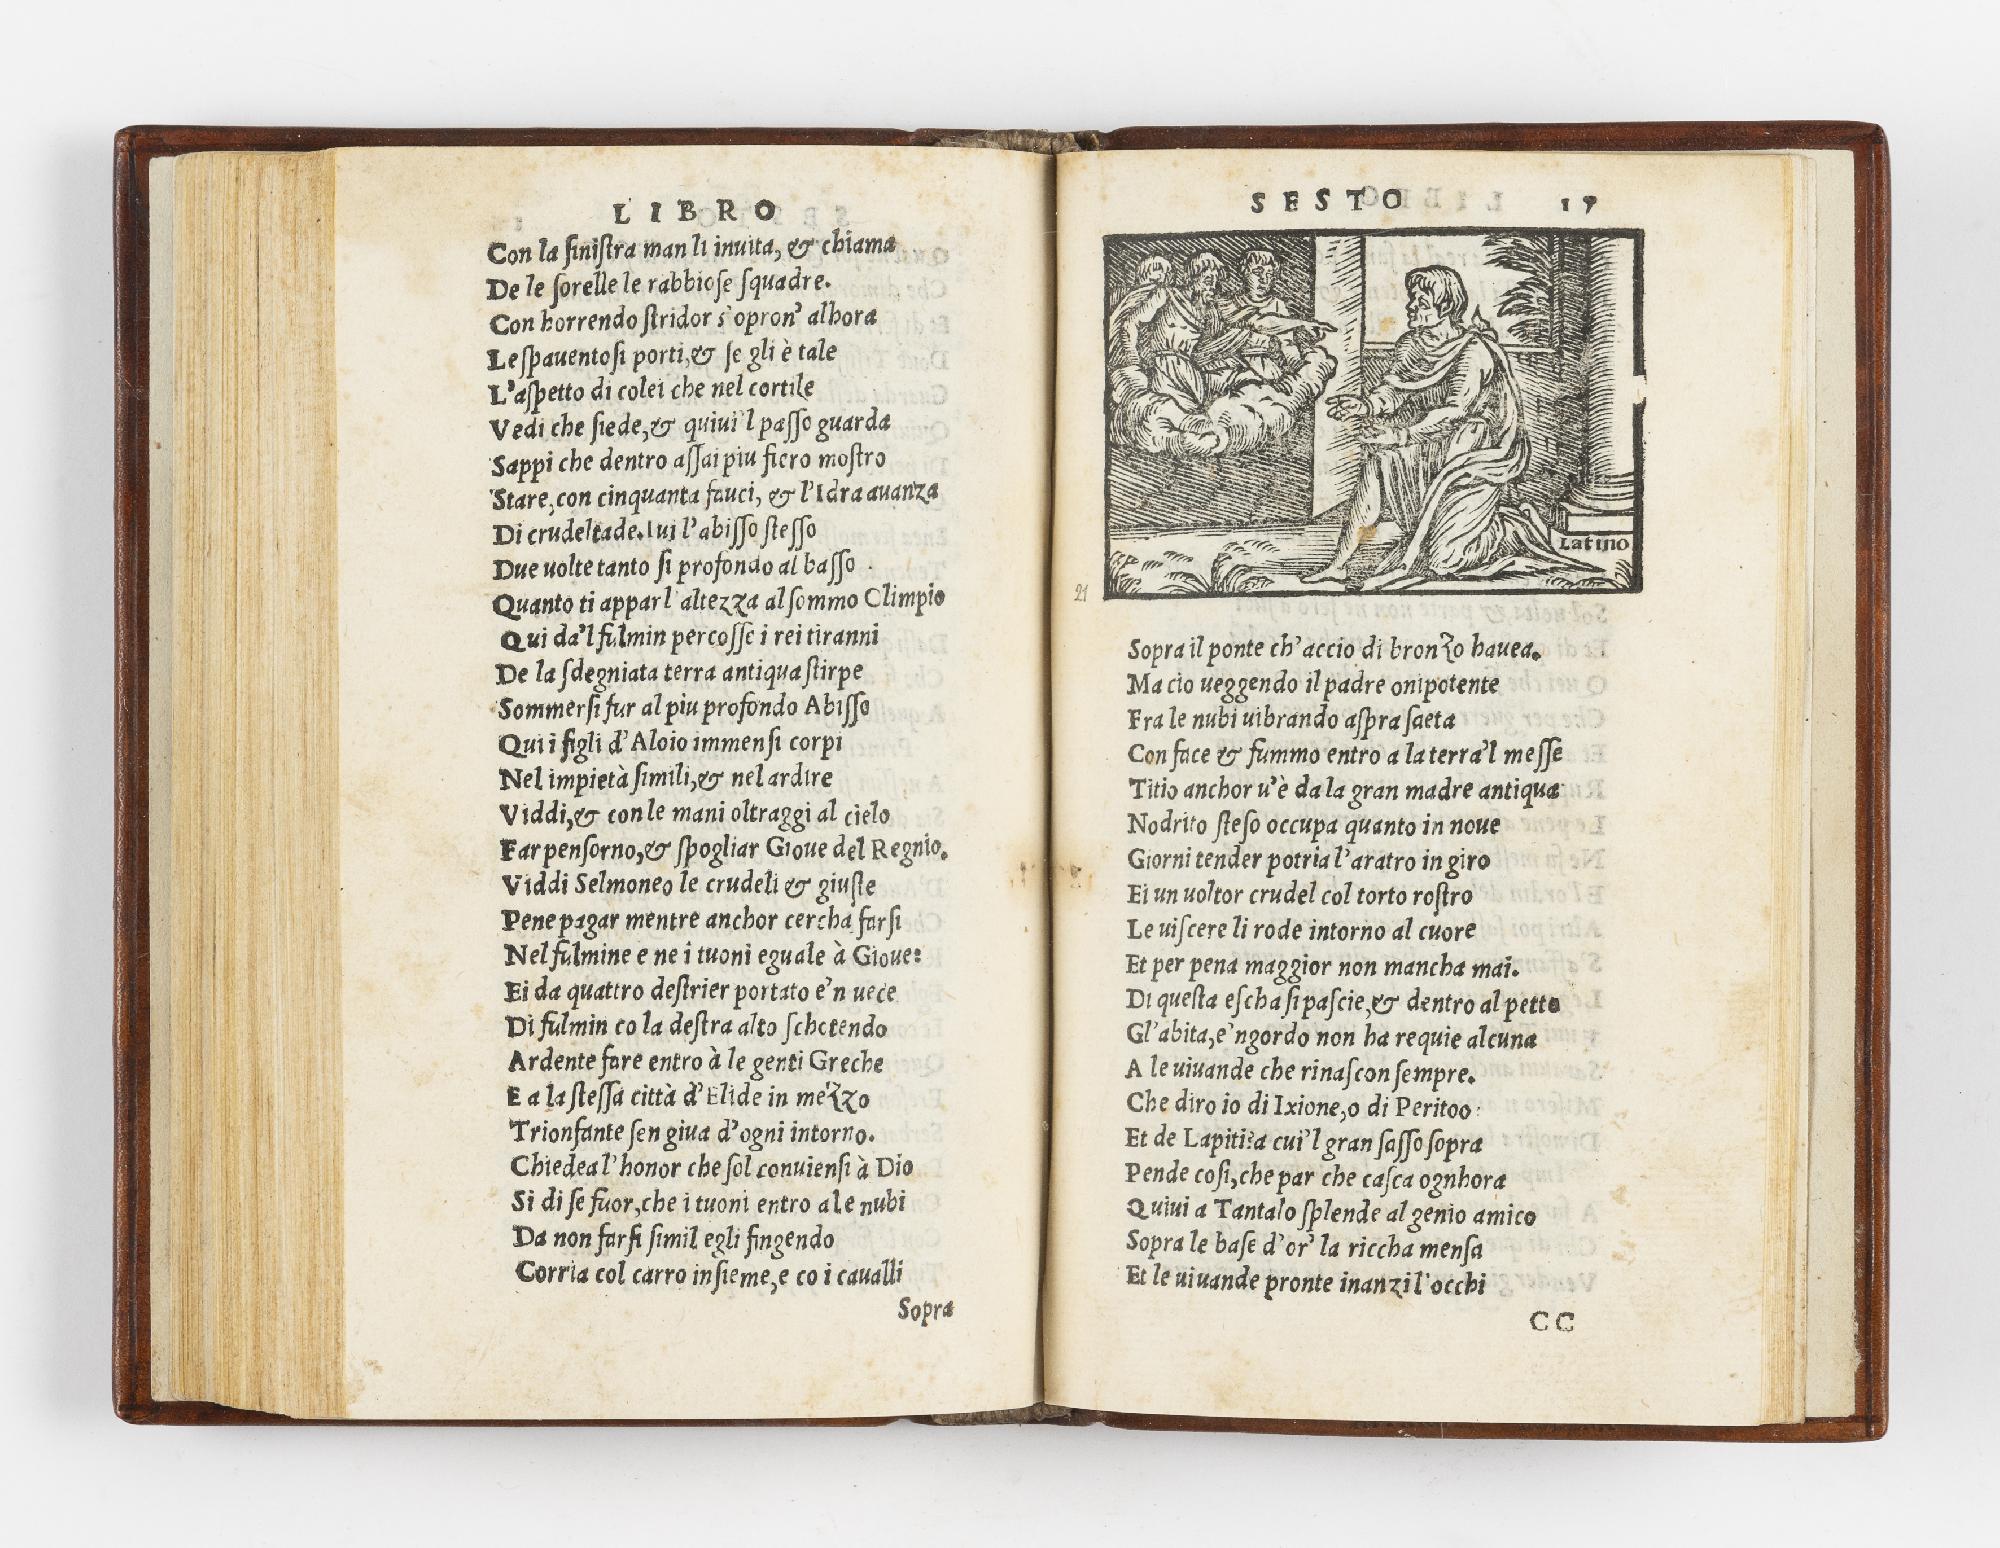 LIBRO
Con la finiſtra man li inuita, & chiama
De le ſorelle le rabbioſe ſquadre.
Con horrendo ſtridor s'opron' alhora
Le ſpauentoſi porti, & ſe gli è tale
L'aſpetto di colei che nel cortile
Vedi che ſiede, & quiui'l paſſo guarda
Sappi che dentro aſſai piu fiero moſtro
Stare, con cinquanta fauci, & l'Idra auanza
Di crudeltade. Iui l'abiſſo ſteſſo
Due uolte tanto ſi profondo al baſſo
Quanto ti appar l'altezza al ſommo Olimpio
Qui da'l fulmin percoſſe i rei tiranni
De la ſdegniata terra antiqua ſtirpe
Sommerſi fur al piu profondo Abiſſo
Qui i figli d'Aloio immenſi corpi
Nel impietà ſimili, & nel ardire
Viddi, & con le mani oltraggi al cielo
Far penſorno, & ſpogliar Gioue del Regnio.
Viddi Selmoneo le crudeli & giuſte
Pene pagar mentre anchor cercha farſi
Nel fulmine e ne i tuoni eguale à Gioue:
Ei da quattro deſtrier portato e'n uece
Di fulmin co la deſtra alto ſchotendo
Ardente fare entro à le genti Greche
E a la ſteſſa città d'Elide in mezzo
Trionfante ſen giua d'ogni intorno.
Chiedea l'honor che ſol conuienſi à Dio
Si di ſe fuor, che i tuoni entro a le nubi
Da non farſi ſimil egli fingendo
Corria col carro inſieme, e co i caualli
Sopra
SESTO 19
Latino
21
Sopra il ponte ch'accio di bronzo hauea.
Ma cio ueggendo il padre onipotente
Fra le nubi uibrando aſpra ſaeta
Con face & fummo entro a la terra'l meſſe
Titio anchor u'è da la gran madre antiqua
Nodrito ſteſo occupa quanto in noue
Giorni tender potria l'aratro in giro
Ei un uoltor crudel col torto roſtro
Le uiſcere li rode intorno al cuore
Et per pena maggior non mancha mai.
Di queſta eſcha ſi paſcie, & dentro al petto
Gl'abita, e'ngordo non ha requie alcuna
A le uiuande che rinaſcon ſempre.
Che diro io di Ixione, o di Peritoo:
Et de Lapiti? a cui'l gran ſaſſo ſopra
Pende coſi, che par che caſca ognhora
Quiui a Tantalo ſplende al genio amico
Sopra le baſe d'or' la riccha menſa
Et le uiuande pronte inanzi l'occhi
CC